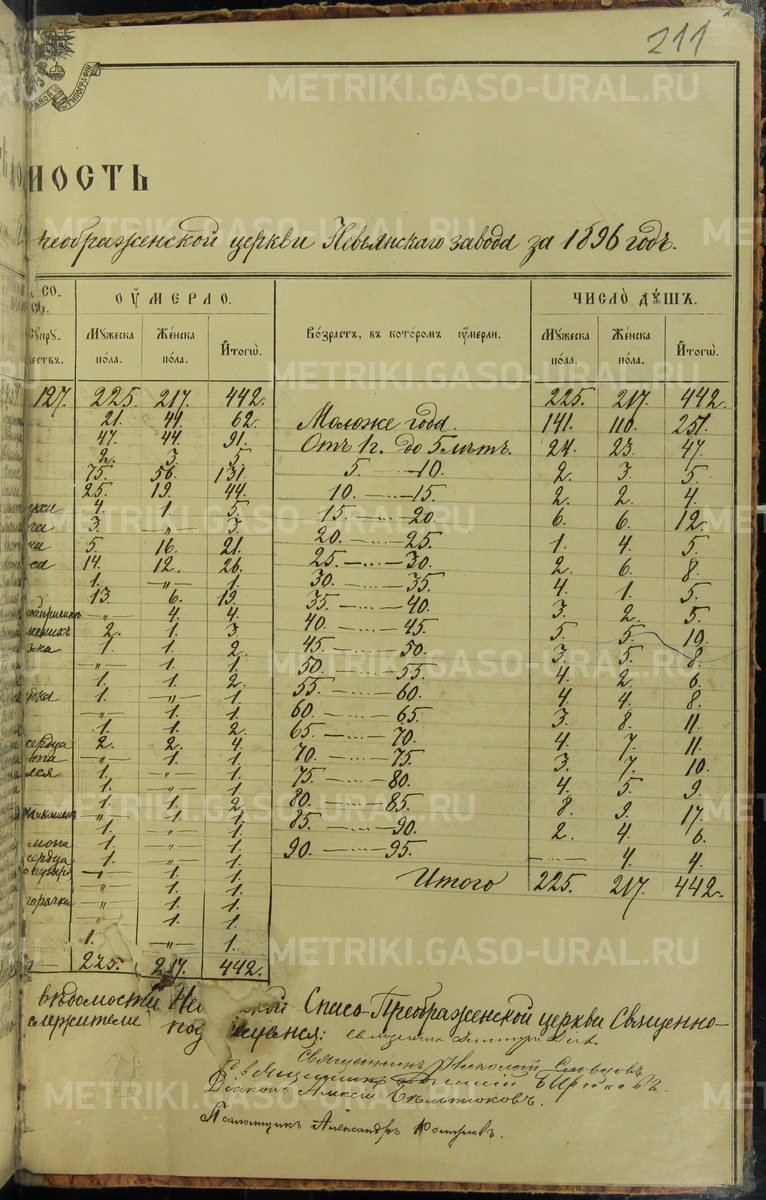 211
ЗАВОД ТИПОГРАФІИ
METRIKI.GASO-URAL.RU
МОСТЬ
преображенской церкви Невьянскаго завода за 1896 годъ.
СО-
ОУМЕРЛО.
ЧИСЛО ДУШЪ.
СУПРУ-
ЖЕСТВЪ.
МУЖЕСКА ПОЛА.
ЖЕНСКА ПОЛА.
ИТОГѠ.
ВОЗРАСТЪ, ВЪ КОТОРОМЪ ОУМЕРЛИ.
МУЖЕСКА ПОЛА.
ЖЕНСКА ПОЛА.
ИТОГѠ.
127. 225. 217. 442. 225. 217. 442.
21. 41. 62. Моложе года. 141. 110. 251.
47. 44. 91. Отъ 1 г. до 5 лѣтъ. 24. 23. 47.
2. 3. 5 5. —10. 2. 3. 5.
75. 56. 131. 10. — 15. 2. 2. 4.
25. 19. 44. 15. — 20. 6. 6. 12.
4. 1. 5. 20. — 25. 1. 4. 5.
3. —„— 3. 25. — 30. 2. 6. 8.
5. 16. 21. 30. — 35. 4. 1. 5.
14. 12. 26. 35. — 40. 3. 2. 5.
1. —„— 1. 40. — 45. 5. 5. 10.
13. 6. 19. 45. — 50. 3. 5. 8.
—„— 4. 4. 50. — 55. 4. 2. 6.
2. 1. 3. 55. — 60. 4. 4. 8.
1. 1. 2. 60. — 65. 3. 8. 11.
—„— 1. 1. 65. — 70. 4. 7. 11.
1. 1. 2. 70. — 75. 3. 7. 10.
1. —„— 1. 75. — 80. 4. 5. 9.
—„— 1. 1. 80. — 85. 8. 9. 17.
1. 1. 2. 85. — 90. 2. 4. 6.
сердца 2. 2. 4. 90. — 95. — 4. 4.
—„— 1. 1. Итого 225. 217. 442.
лся 1. —„— 1.
1. —„— 1.
1. 1. 2.
—„— 1. 1.
1. —„— 1.
1. —„— 1.
сердца 1. —„— 1.
1.
—„— 1. 1.
горячка —„— 1. 1.
—„— 1. 1.
1. —„— 1.
225. 217. 442.
вѣдомости Не кой Спасо-Преображенской церкви Священно-
служители под исуемся: Священникъ Димитрій
Священникъ Николай Словцовъ
Священникъ
Діаконъ Алексій Бѣльтюковъ.
Псаломщикъ Александръ